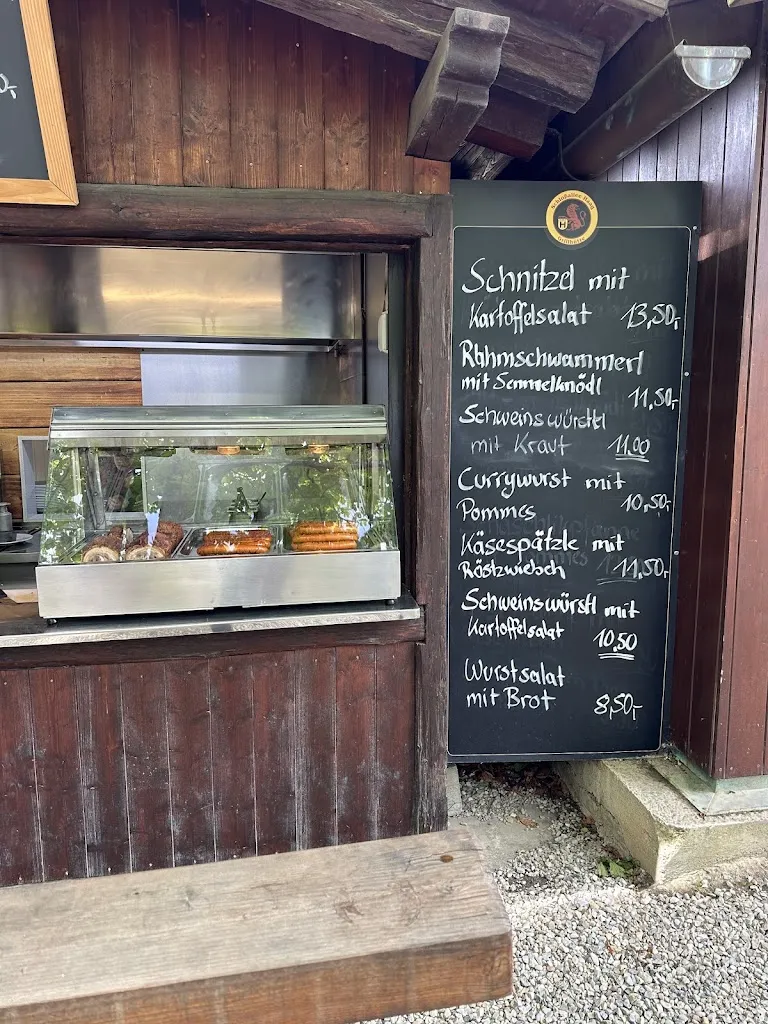 Schnitzel mit
Kartoffelsalat 13,50,-
Rahmschwammerl
mit Semmelknödl 11,50,-
Schweinswürstl
mit Kraut 11,00
Currywurst mit
Pommes 10,50,-
Käsespätzle mit
Röstzwiebeln 11,50,-
Schweinswürstl mit
Kartoffelsalat 10,50
Wurstsalat
mit Brot 8,50,-